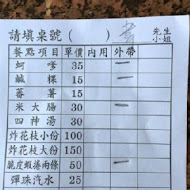 請填桌號 ( ) 先生
小姐
餐點項目 單價 內用 外帶
蚵嗲 35 一
鹹粿 15 一
蕃薯 15
米大腸 30 一
四神湯 30
炸花枝小份 100
炸花枝大份 150
脆皮蝦捲兩條 50 一
彈珠汽水 25